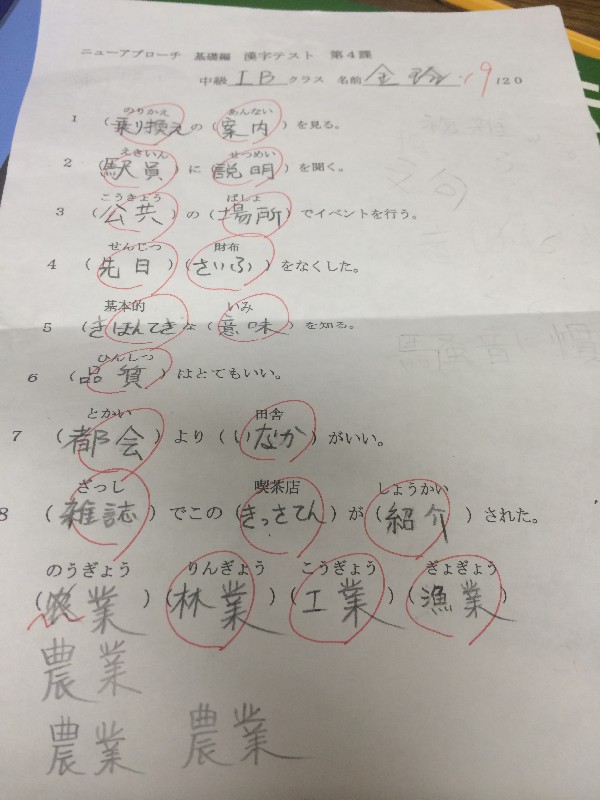 ニューアプローチ 基礎編 漢字テスト 第4課
中級 ⅠB クラス 名前 金 19/20
のりかえ あんない
1 (乗り換えの (案内) を見る。
えきいん せつめい
2 (駅員) に (説明) を聞く。
こうきょう ばしょ
3 (公共) の (場所) でイベントを行う。
せんじつ 財布
4 (先日) (さいふ) をなくした。
基本的 いみ
5 (きほんてきな (意味) を知る。
ひんしつ
6 (品質) はとてもいい。
とかい 田舎
7 (都会) より (いなか) がいい。
ざっし 喫茶店 しょうかい
8 (雑誌) でこの (きっさてん) が (紹介) された。
のうぎょう りんぎょう こうぎょう ぎょぎょう
(業) (林業) (工業) (漁業)
農業
農業 農業